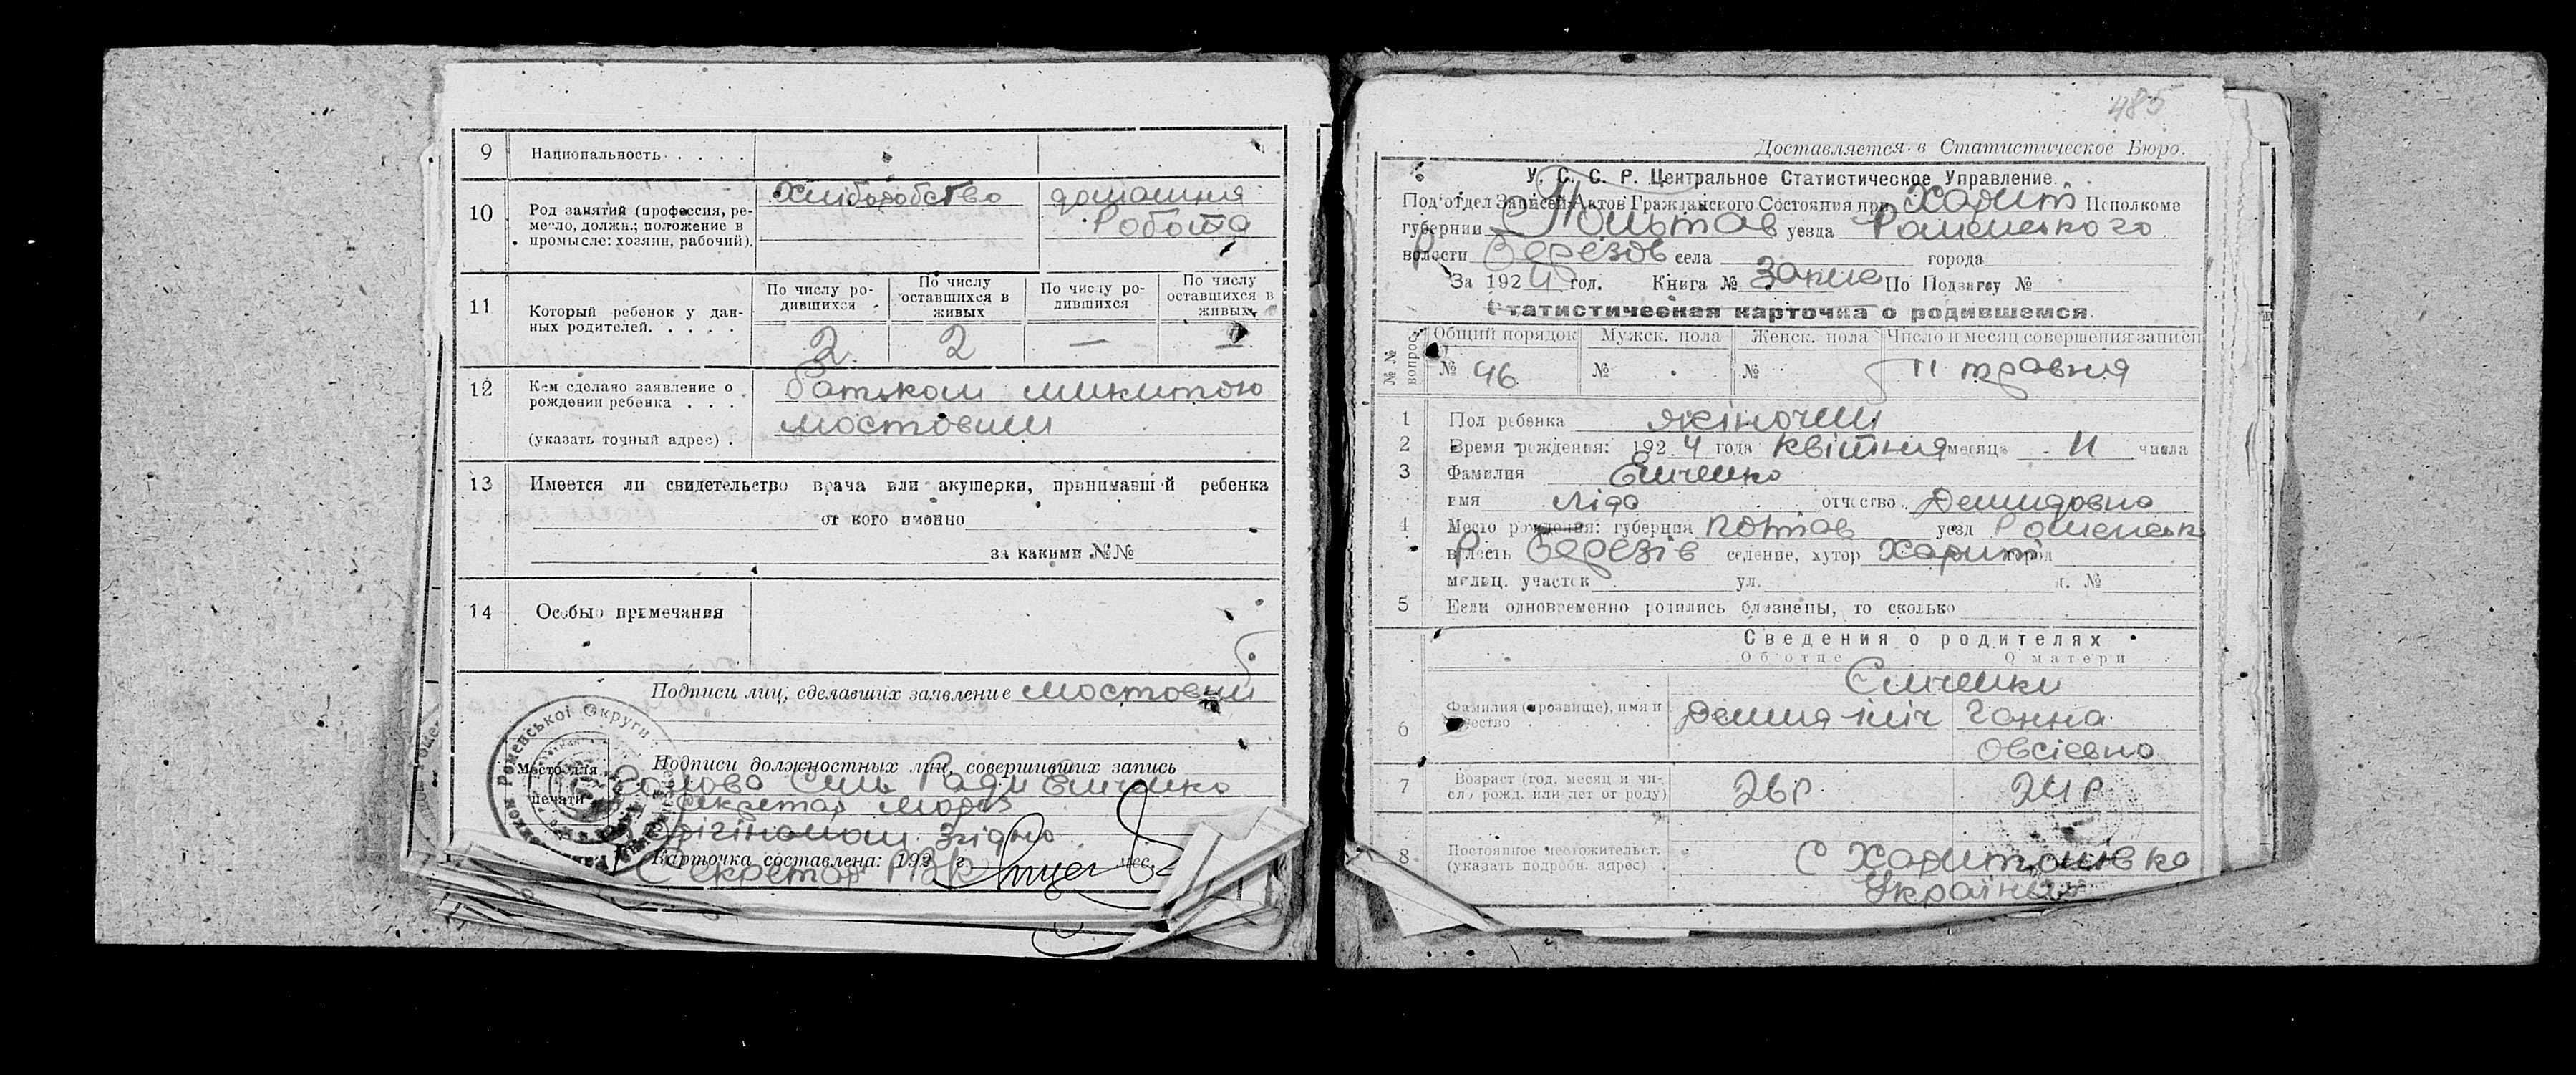 9 Национальность
10 Род занятий (профессия, ремесло, должн.; положение в промысле: хозяин, рабочий).
Хліборобство
домашня
Робота
11 Который ребенок у данных родителей.
По числу родившихся
По числу оставшихся в живых
По числу родившихся
По числу оставшихся в живых
2. 2 — —
12 Кем сделано заявление о рождении ребенка
(указать точный адрес)
батьком микитою
мостовим
13 Имеется ли свидетельство врача или акушерки, принимавшей ребенка
от кого именно
за какими №№
14 Особые примечания
Подписи лиц, сделавших заявление мостовий
Место для печати
Подписи должностных лиц, совершивших запись
Голова Сіль Ради Єличенко
Секретар мороз
З орігіналом згідно
Карточка составлена: 192 г. мес.
Секретар РВК
485
Доставляется в Статистическое Бюро.
У. С. С. Р. Центральное Статистическое Управление.
Под'отдел Записей Актов Гражданского Состояния при Харит Исполкоме
губернии Полтав уезда Роменського
волости Березов села города
За 1924 год. Книга № По Подзагсу №
Статистическая карточка о родившемся.
№№ вопрос.
Общий порядок Мужск. пола Женск. пола Число и месяц совершения записи
№ 46 № № 11 травня
1 Пол ребенка жіночий
2 Время рождения: 1924 года квітня месяца 11 числа
3 Фамилия
имя Ліда отчество Демидовна
4 Место рождения: губерния Полтав уезд Роменськ
волость Березів селение, хутор Харит город
медиц. участок ул. д. №
5 Если одновременно родились близнецы, то сколько
Сведения о родителях
Об отце О матери
6 Фамилия (прозвище), имя и отчество
Ганна
Овсіевна
7 Возраст (год, месяц и число рожд. или лет от роду)
26 р 24 р
8 Постоянное местожительст. (указать подробн. адрес)
С Харитоновка